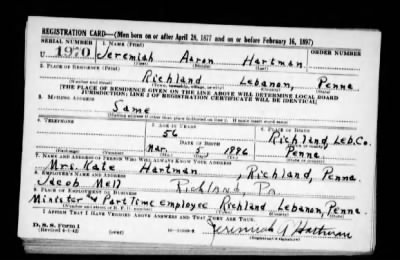 REGISTRATION CARD—(Men born on or after April 28, 1877 and on or before February 16, 1897)
SERIAL NUMBER 1. NAME (Print) ORDER NUMBER
U 1970 Jeremiah Aaron Hartman
(First) (Middle) (Last)
2. PLACE OF RESIDENCE (Print)
Richland Lebanon, Penna
(Number and street) (Town, township, village, or city) (County) (State)
[THE PLACE OF RESIDENCE GIVEN ON THE LINE ABOVE WILL DETERMINE LOCAL BOARD
JURISDICTION; LINE 2 OF REGISTRATION CERTIFICATE WILL BE IDENTICAL]
3. MAILING ADDRESS
Same
[Mailing address if other than place indicated on line 2. If same insert word same]
4. TELEPHONE 5. AGE IN YEARS 6. PLACE OF BIRTH
56 Richland, Leb. Co.
DATE OF BIRTH
Mar. 5 1886 Penna.
7. NAME AND ADDRESS OF PERSON WHO WILL ALWAYS KNOW YOUR ADDRESS
Mrs. Kate Hartman, Richland, Penna.
8. EMPLOYER'S NAME AND ADDRESS
Jacob Mell Richland, Pa.
9. PLACE OF EMPLOYMENT OR BUSINESS
Minister and Part Time employee Richland Lebanon, Penna.
I AFFIRM THAT I HAVE VERIFIED ABOVE ANSWERS AND THAT THEY ARE TRUE.
D. S. S. Form 1
(Revised 4-1-42)
Jeremiah A Hartman
(Registrant's signature)